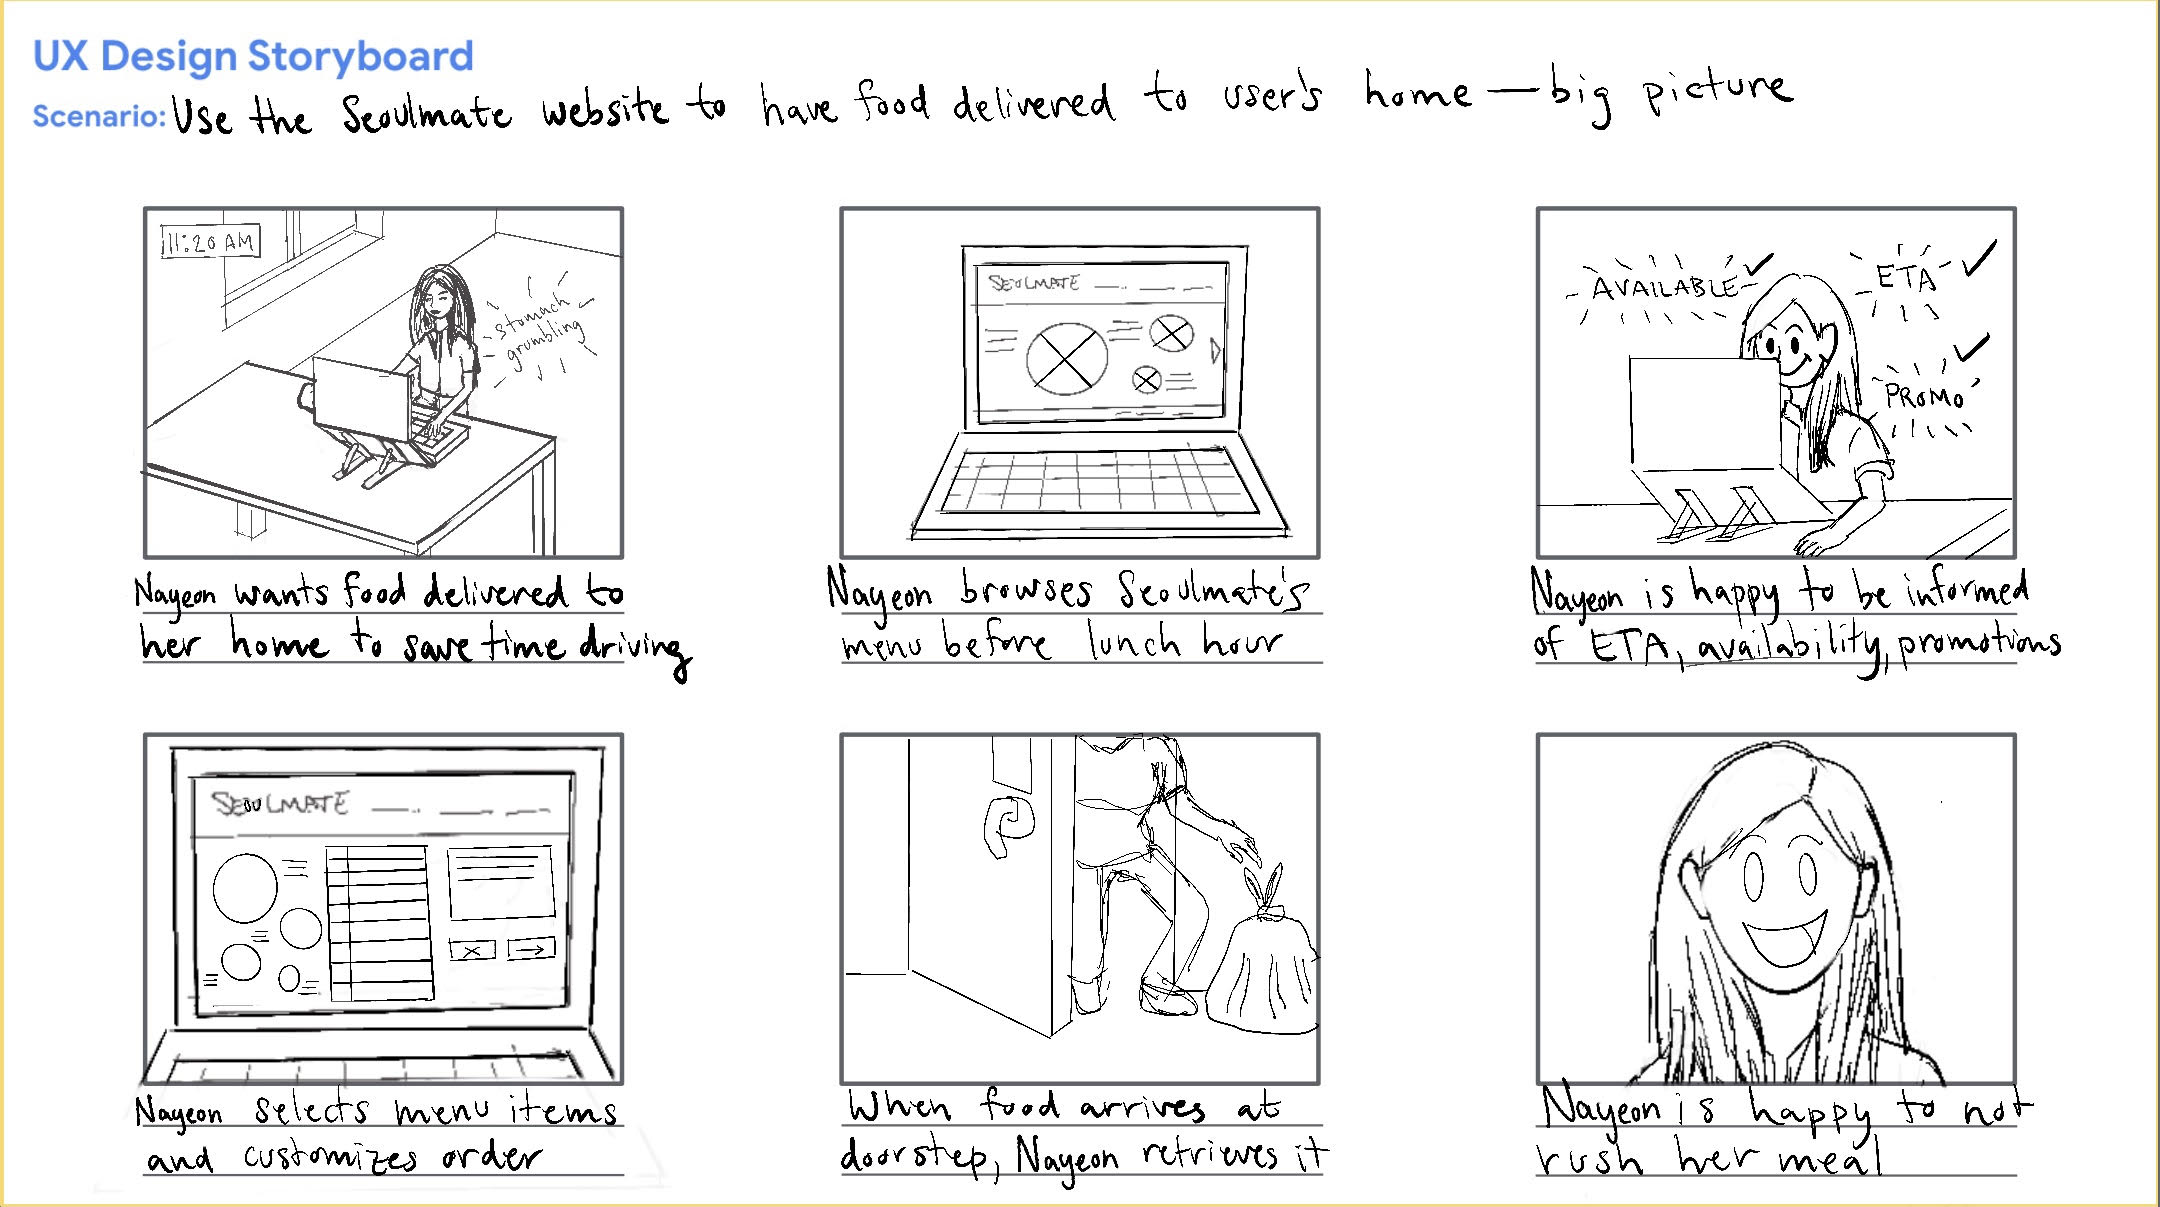 UX Design Storyboard
Scenario: Use the Seoulmate website to have food delivered to user's home — big picture
11:20 AM
stomach
grumbling
SEOULMATE
AVAILABLE
ETA
PROMO
Nayeon wants food delivered to
her home to save time driving
Nayeon browses Seoulmate's
menu before lunch hour
Nayeon is happy to be informed
of ETA, availability, promotions
SEOULMATE
Nayeon selects menu items
and customizes order
When food arrives at
doorstep, Nayeon retrieves it
Nayeon is happy to not
rush her meal